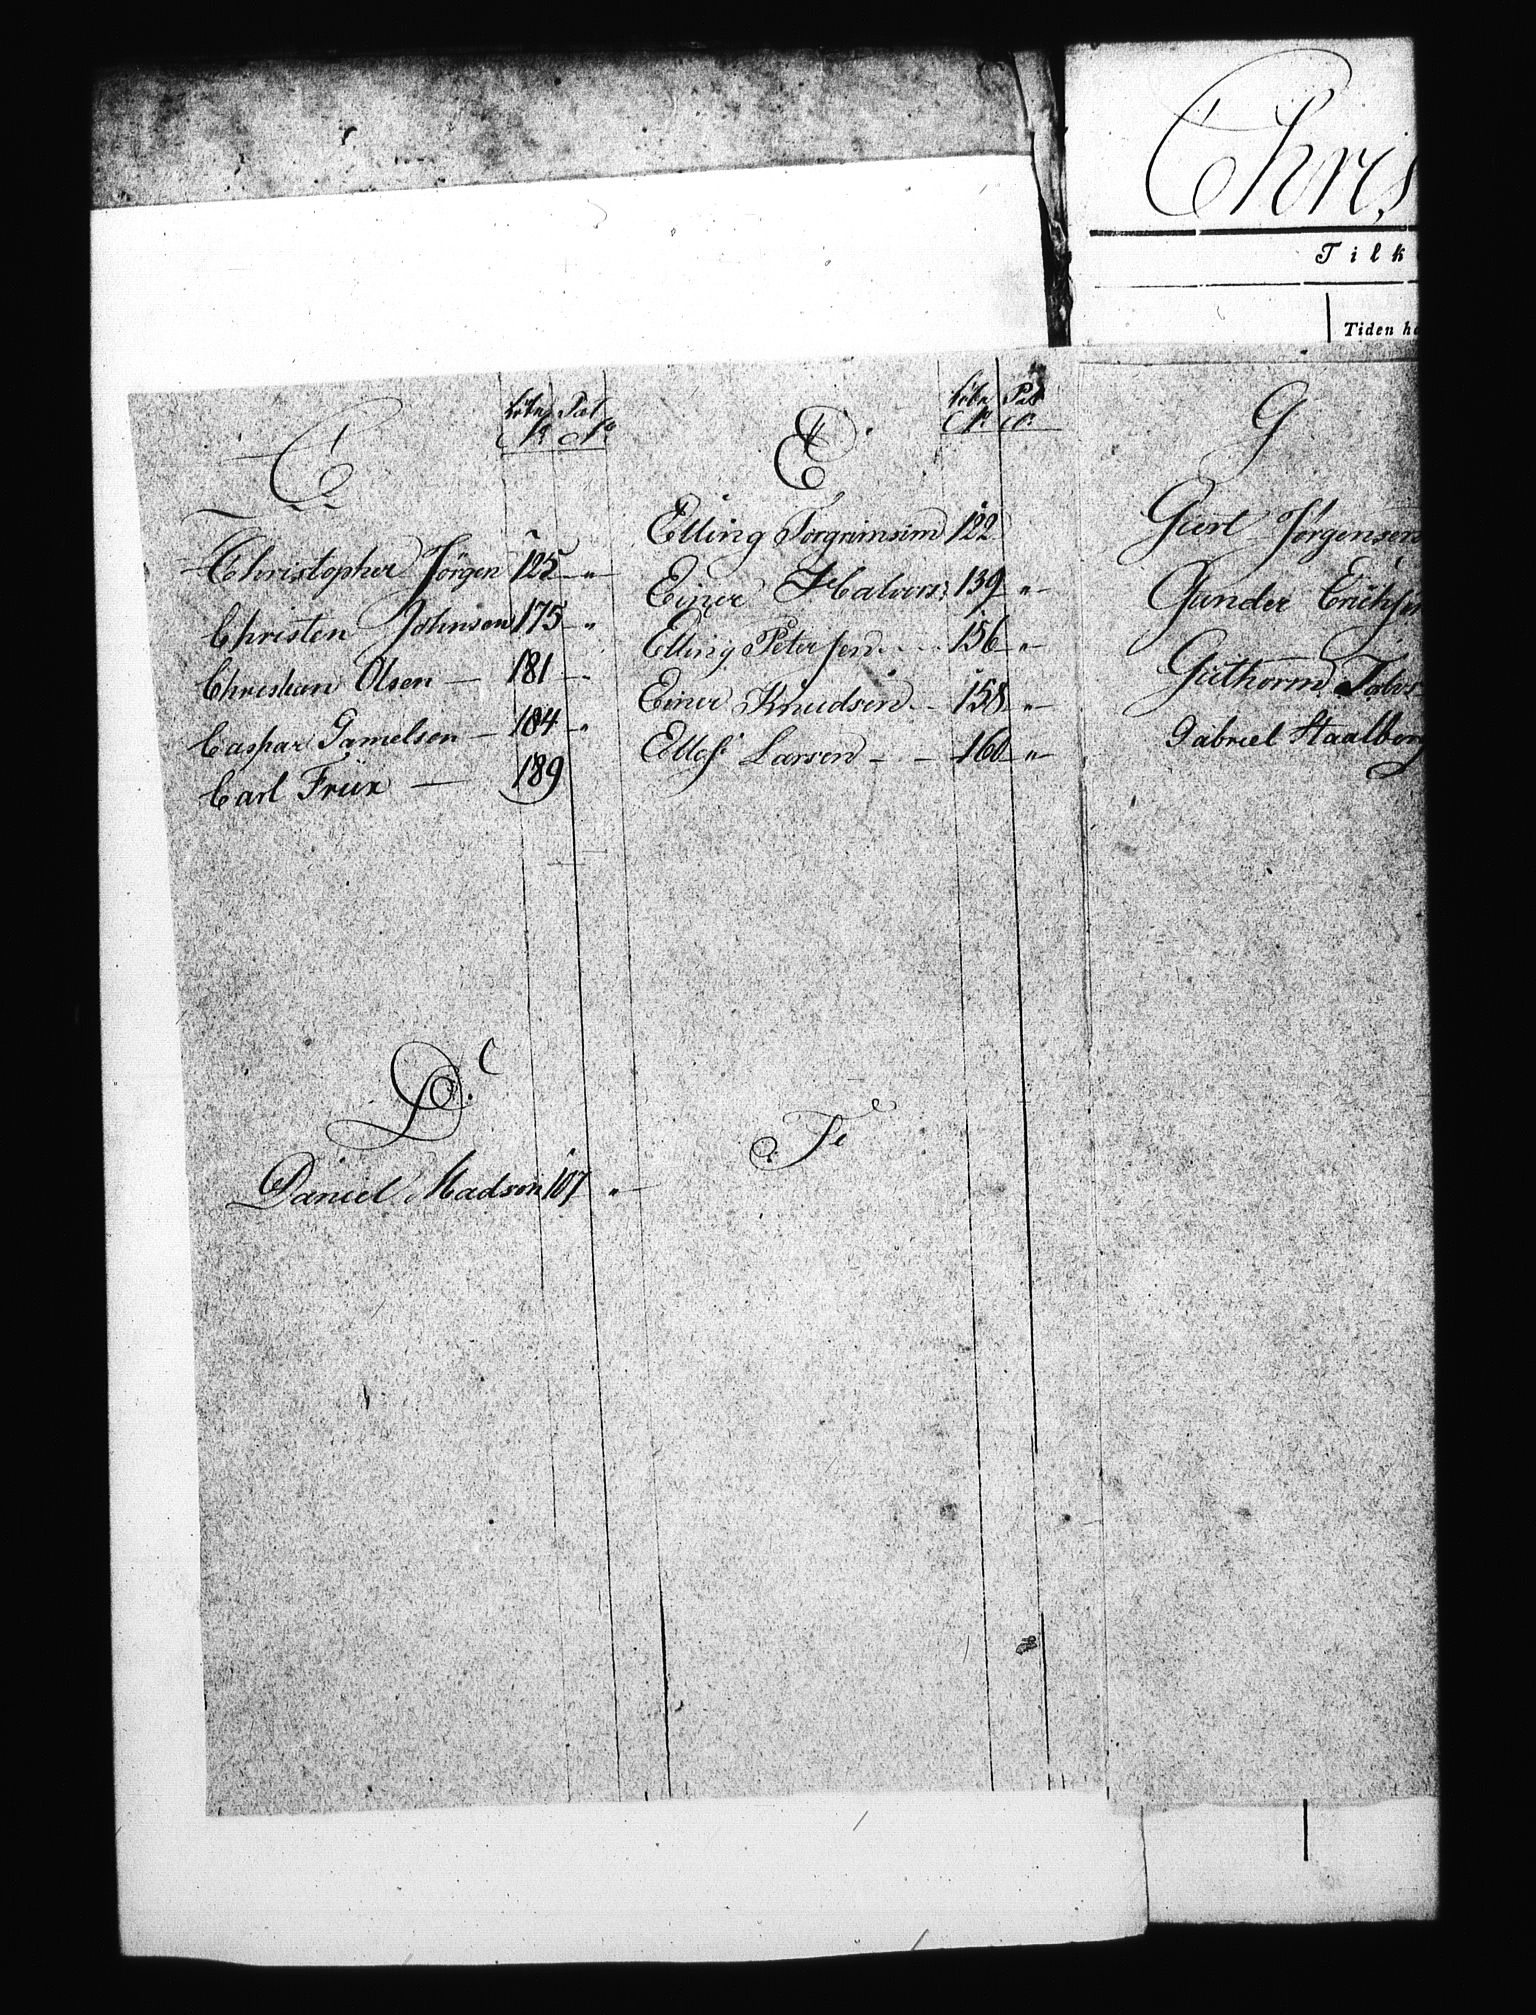 Chris
Tilk
Tiden ha
C
Løbe Pat
No No
Christopher Jörgen 125 "
Christen Johnsen 175 "
Christian Olsen — 181 —
Caspar Gamelsen — 184 "
Carl Früx — 189
D.
Daniel Madsen 107 "
E.
Løbe Pat
No No
Elling Torgrimsen 122
Einer Halvors: 139 "
Elling Petersen 156 "
Einer Knudsen 158 "
Larsen 160 "
F
G
Giert Jørgensen
Gunder Erichsen
Guthorm
Gabriel Staalberg